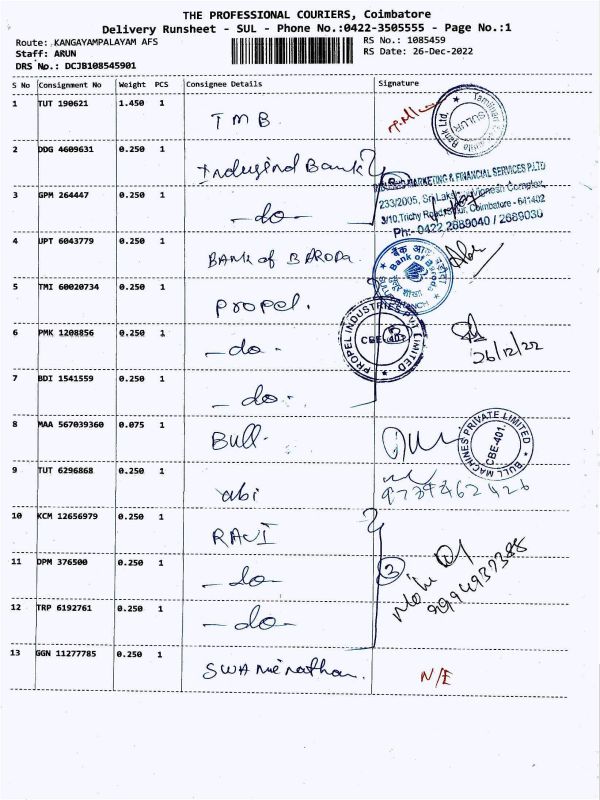 THE PROFESSIONAL COURIERS, Coimbatore
Delivery Runsheet - SUL - Phone No.:0422-3505555 - Page No.:1
Route: KANGAYAMPALAYAM AFS
RS No.: 1085459
Staff: ARUN
RS Date: 26-Dec-2022
DRS No.: DCJB108545901
S No Consignment No Weight PCS Consignee Details Signature
1 TUT 190621 1.450 1 TMB
Tamilnad Mercantile Bank Ltd.
SULUR
2 DDG 4609631 0.250 1 Indusind Bank
MARKETING & FINANCIAL SERVICES P.LTD
3 GPM 264447 0.250 1 -do-
233/2005, Complex,
3/10,Trichy Road, Coimbatore - 641402
Ph:- 0422 2689040 / 2689030
4 UPT 6043779 0.250 1 BANK of BARODA
Bank of Baroda
5 TMI 60020734 0.250 1 Propel.
6 PMK 1208856 0.250 1 -do-
PROPEL INDUSTRIES PVT. LIMITED
CBE-
3
26/12/22
7 BDI 1541559 0.250 1 -do-
8 MAA 567039360 0.075 1 Bull.
BULL MACHINES PRIVATE LIMITED
CBE-401.
9 TUT 6296868 0.250 1 abi
10 KCM 12656979 0.250 1 RAVI
11 DPM 376500 0.250 1 -do-
3
12 TRP 6192761 0.250 1 -do-
13 GGN 11277785 0.250 1 SWAMENathan.
N/E